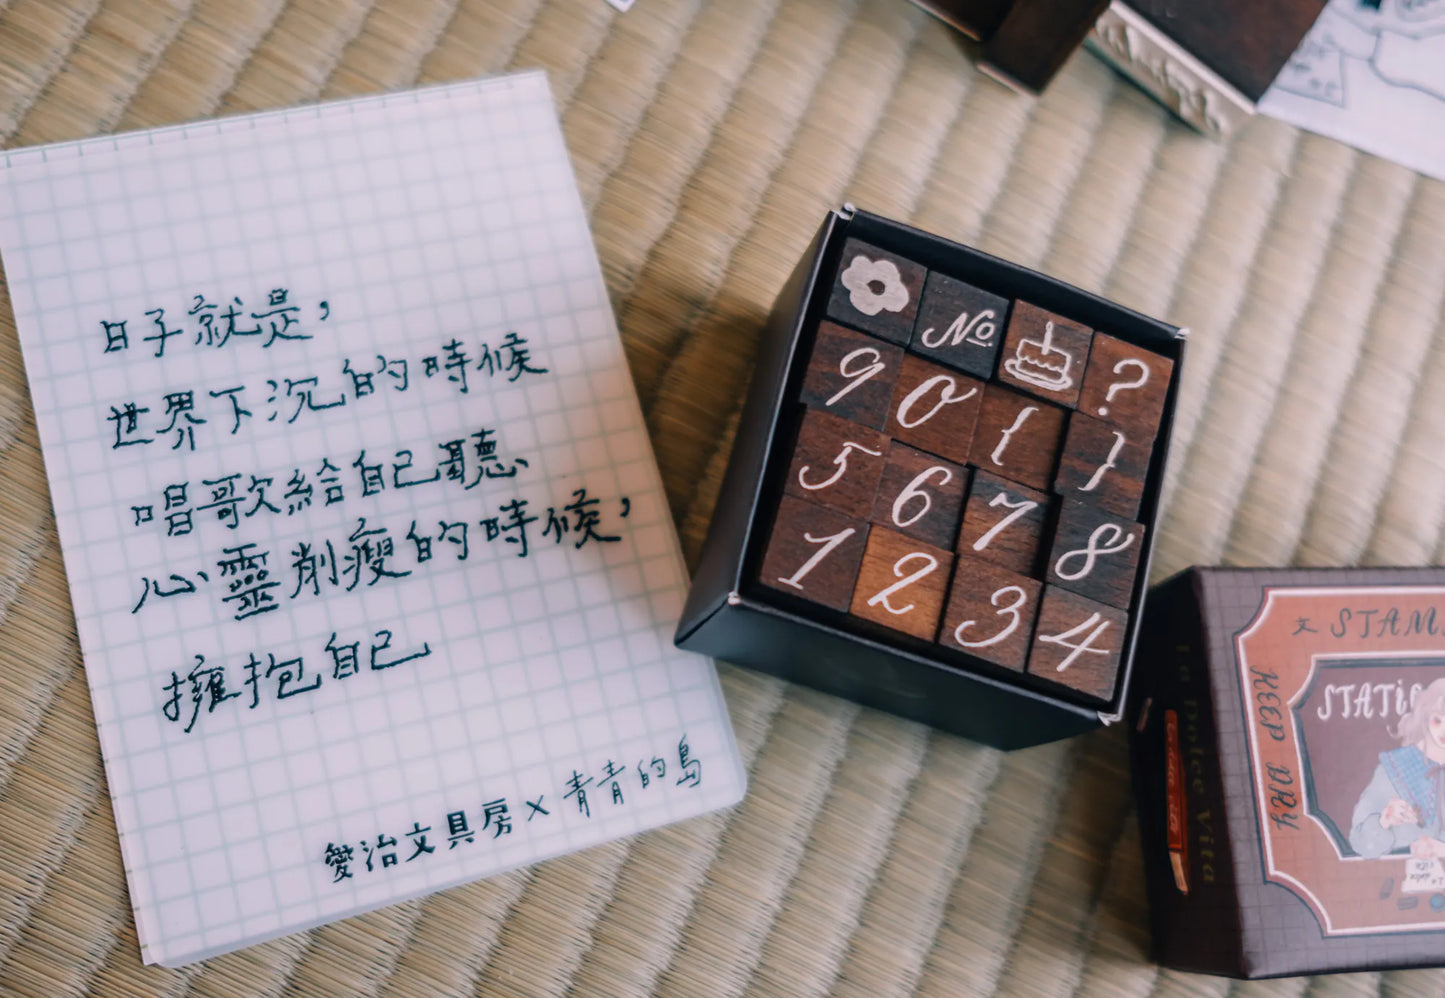 日子就是，
世界下沉的時候
唱歌給自己聽
心靈削瘦的時候，
擁抱自己
愛治文具房 × 青青的島
№ ?
9 0 { }
5 6 7 8
1 2 3 4
文 STAM
STATi
KEEP DRY
La Dolce Vita